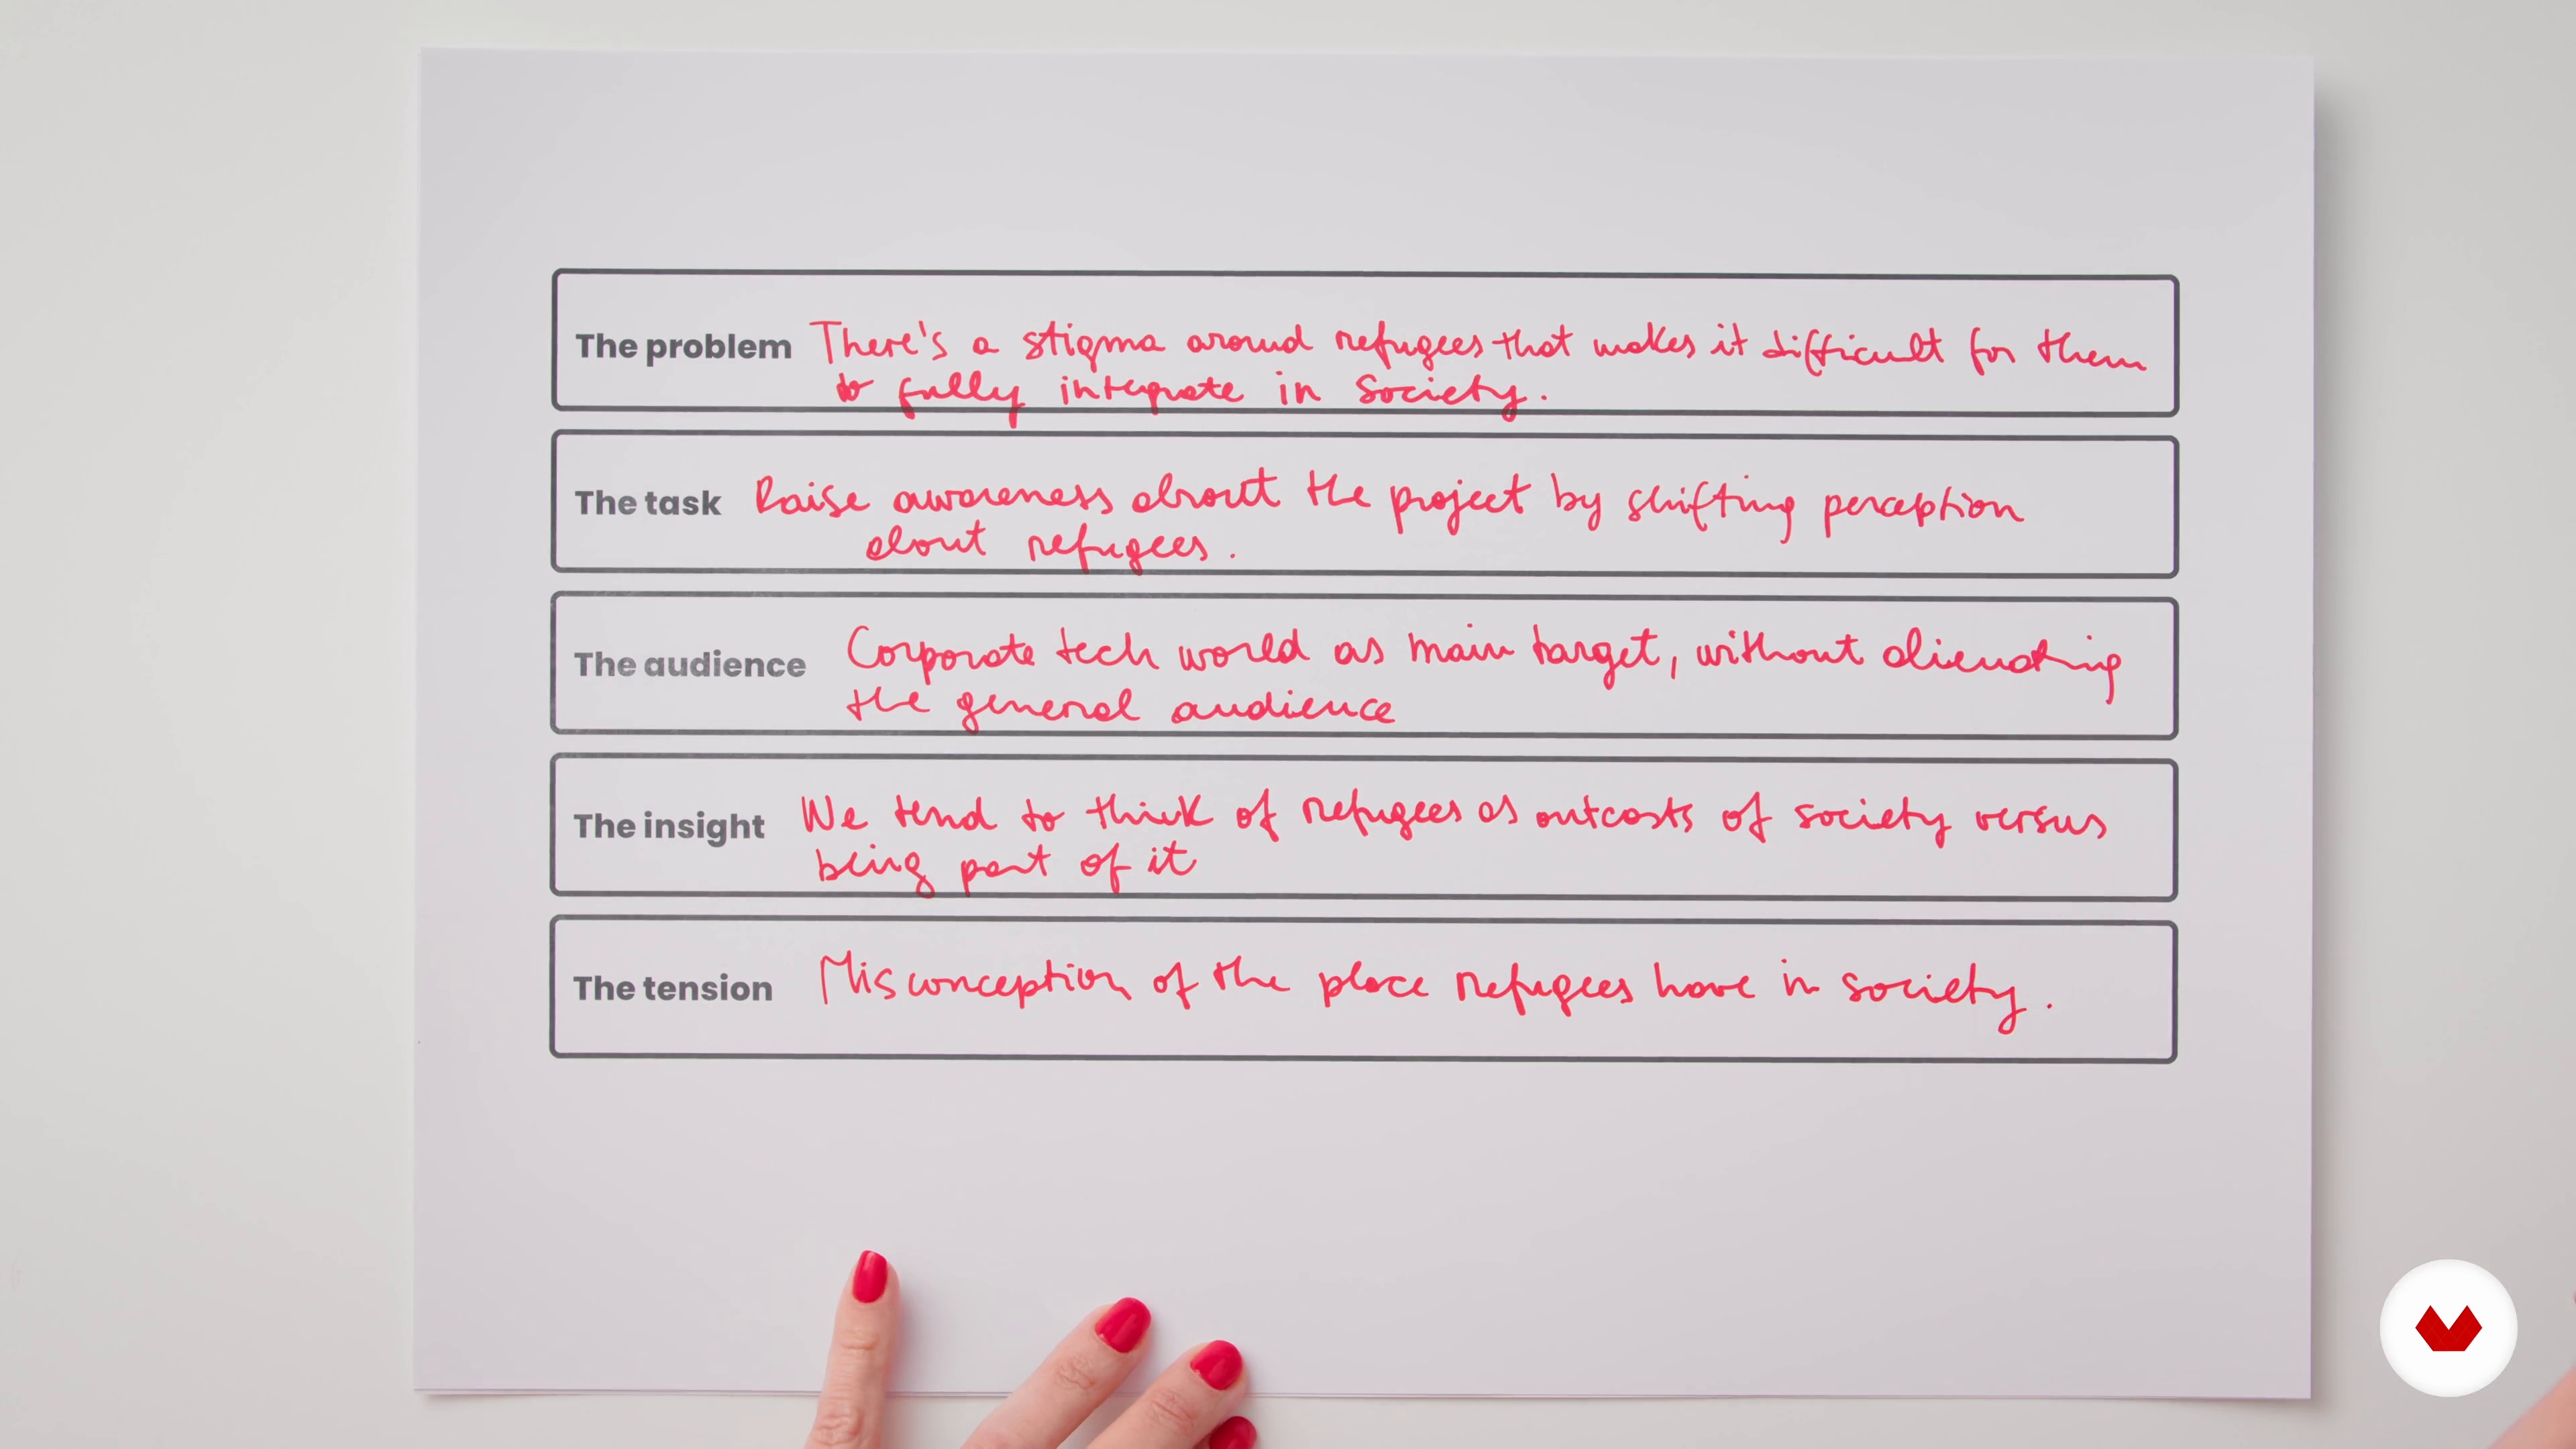 The problem There's a stigma around refugees that makes it difficult for them
to fully integrate in society.
The task Raise awareness about the project by shifting perception
about refugees.
The audience Corporate tech world as main target, without alienating
the general audience
The insight We tend to think of refugees as outcasts of society versus
being part of it
The tension Misconception of the place refugees have in society.